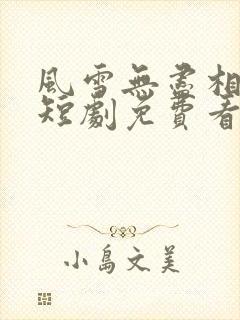 風雪無盡相
短劇免費看
小島文美